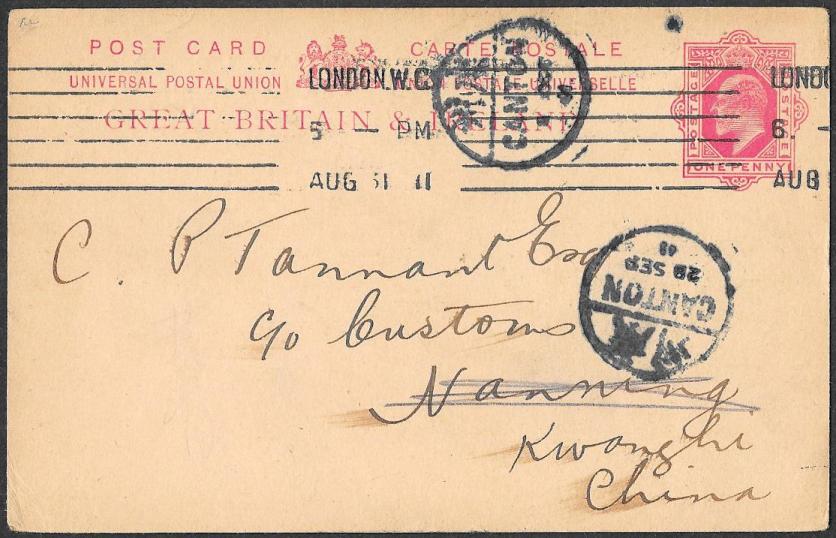 POST CARD CARTE POSTALE
UNIVERSAL POSTAL UNION UNION POSTALE UNIVERSELLE
GREAT BRITAIN & IRELAND
POSTAGE
ONE PENNY
LONDON.W.C
5 - PM
AUG 31 11
LONDO
6.
AUG
CANTON
CANTON
28 SEP
C. P Tannant Esq
c/o Customs
Nanning
Kwanghi
China